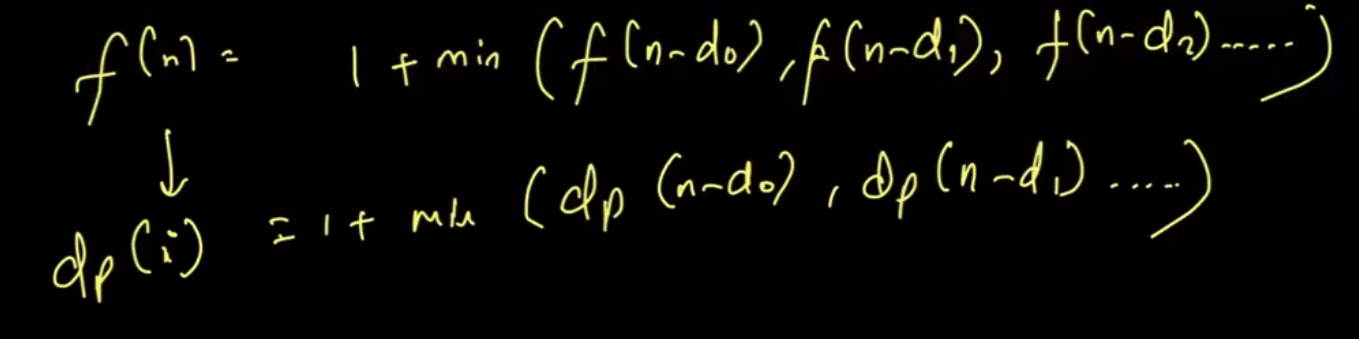 f(n) = 1 + min (f(n-d₀), f(n-d₁), f(n-d₂) ......)
↓
dp(i) = 1 + min (dp(n-d₀), dp(n-d₁) .....)